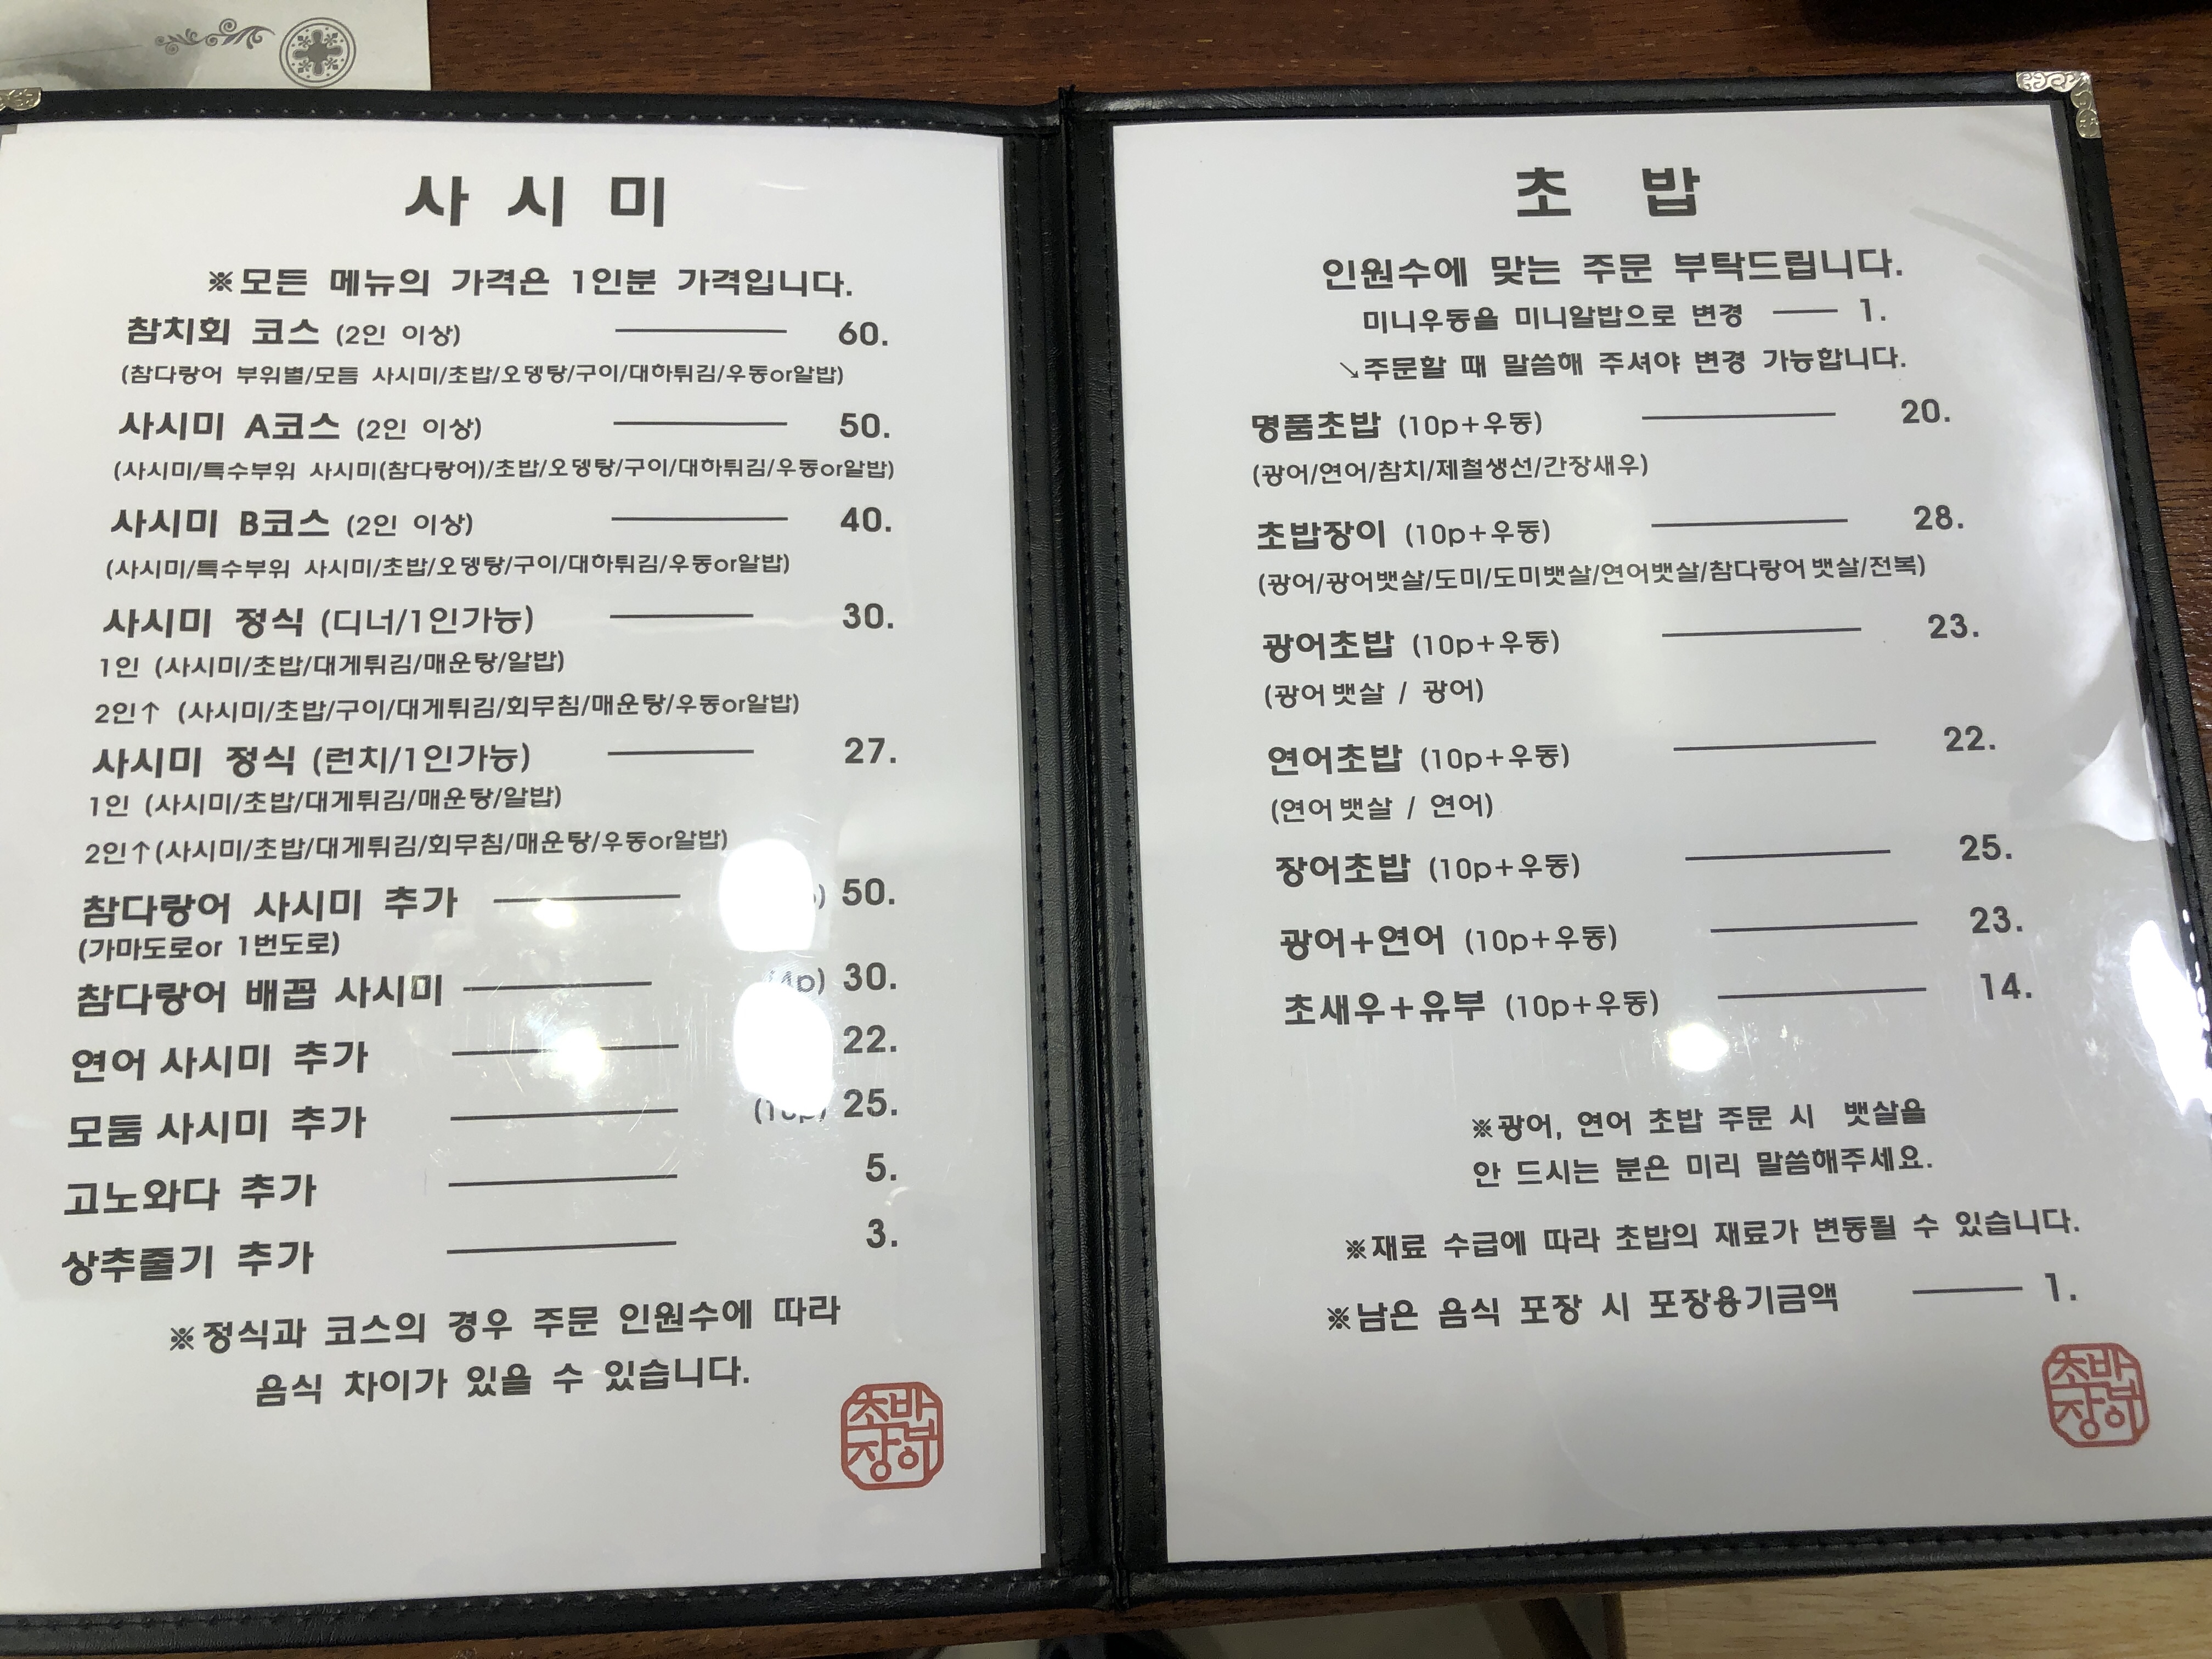 사시미
※모든 메뉴의 가격은 1인분 가격입니다.
참치회 코스 (2인 이상) 60.
(참다랑어 부위별/모듬 사시미/초밥/오뎅탕/구이/대하튀김/우동or알밥)
사시미 A코스 (2인 이상) 50.
(사시미/특수부위 사시미(참다랑어)/초밥/오뎅탕/구이/대하튀김/우동or알밥)
사시미 B코스 (2인 이상) 40.
(사시미/특수부위 사시미/초밥/오뎅탕/구이/대하튀김/우동or알밥)
사시미 정식 (디너/1인가능) 30.
1인 (사시미/초밥/대게튀김/매운탕/알밥)
2인↑ (사시미/초밥/구이/대게튀김/회무침/매운탕/우동or알밥)
사시미 정식 (런치/1인가능) 27.
1인 (사시미/초밥/대게튀김/매운탕/알밥)
2인↑(사시미/초밥/대게튀김/회무침/매운탕/우동or알밥)
참다랑어 사시미 추가 50.
(가마도로or 1번도로)
참다랑어 배꼽 사시미 (4p) 30.
연어 사시미 추가 22.
모둠 사시미 추가 25.
고노와다 추가 5.
상추줄기 추가 3.
※정식과 코스의 경우 주문 인원수에 따라
음식 차이가 있을 수 있습니다.
초밥
장이
초밥
인원수에 맞는 주문 부탁드립니다.
미니우동을 미니알밥으로 변경 1.
↘주문할 때 말씀해 주셔야 변경 가능합니다.
명품초밥 (10p+우동) 20.
(광어/연어/참치/제철생선/간장새우)
초밥장이 (10p+우동) 28.
(광어/광어뱃살/도미/도미뱃살/연어뱃살/참다랑어뱃살/전복)
광어초밥 (10p+우동) 23.
(광어뱃살 / 광어)
연어초밥 (10p+우동) 22.
(연어뱃살 / 연어)
장어초밥 (10p+우동) 25.
광어+연어 (10p+우동) 23.
초새우+유부 (10p+우동) 14.
※광어, 연어 초밥 주문 시 뱃살을
안 드시는 분은 미리 말씀해주세요.
※재료 수급에 따라 초밥의 재료가 변동될 수 있습니다.
※남은 음식 포장 시 포장용기금액 1.
초밥
장이